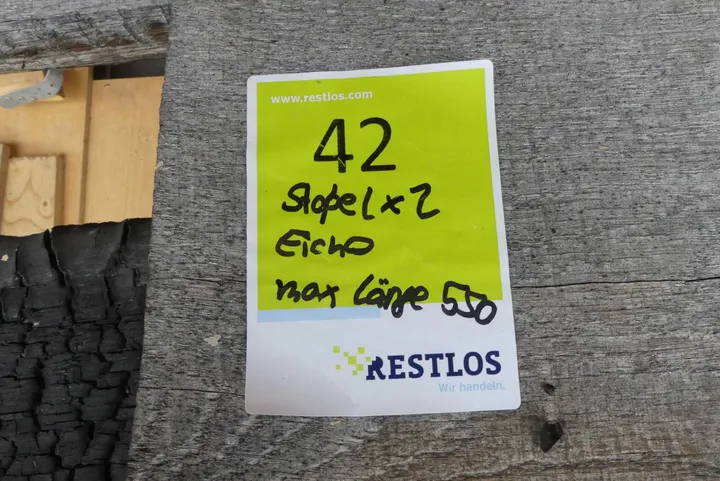 www.restlos.com
42
Stapel x 2
Eiche
max Länge 550
RESTLOS
Wir handeln.